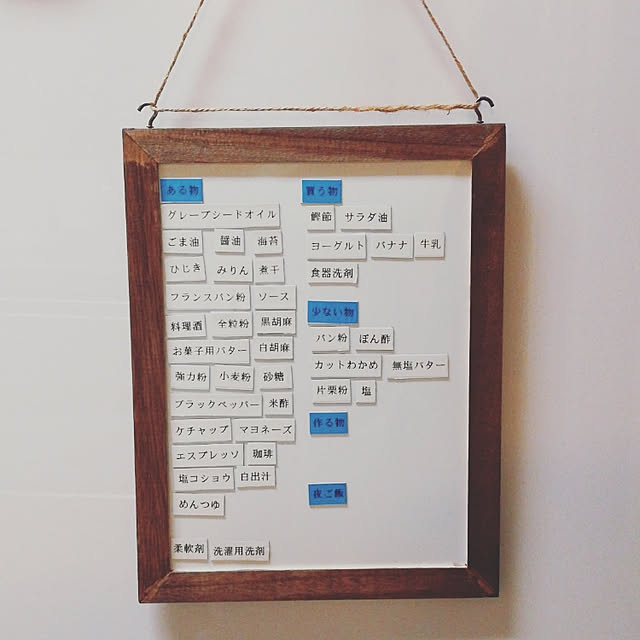 ある物
グレープシードオイル
ごま油 醤油 海苔
ひじき みりん 煮干
フランスパン粉 ソース
料理酒 全粒粉 黒胡麻
お菓子用バター 白胡麻
強力粉 小麦粉 砂糖
ブラックペッパー 米酢
ケチャップ マヨネーズ
エスプレッソ 珈琲
塩コショウ 白出汁
めんつゆ
柔軟剤 洗濯用洗剤
買う物
鰹節 サラダ油
ヨーグルト バナナ 牛乳
食器洗剤
少ない物
パン粉 ぽん酢
カットわかめ 無塩バター
片栗粉 塩
作る物
夜ご飯